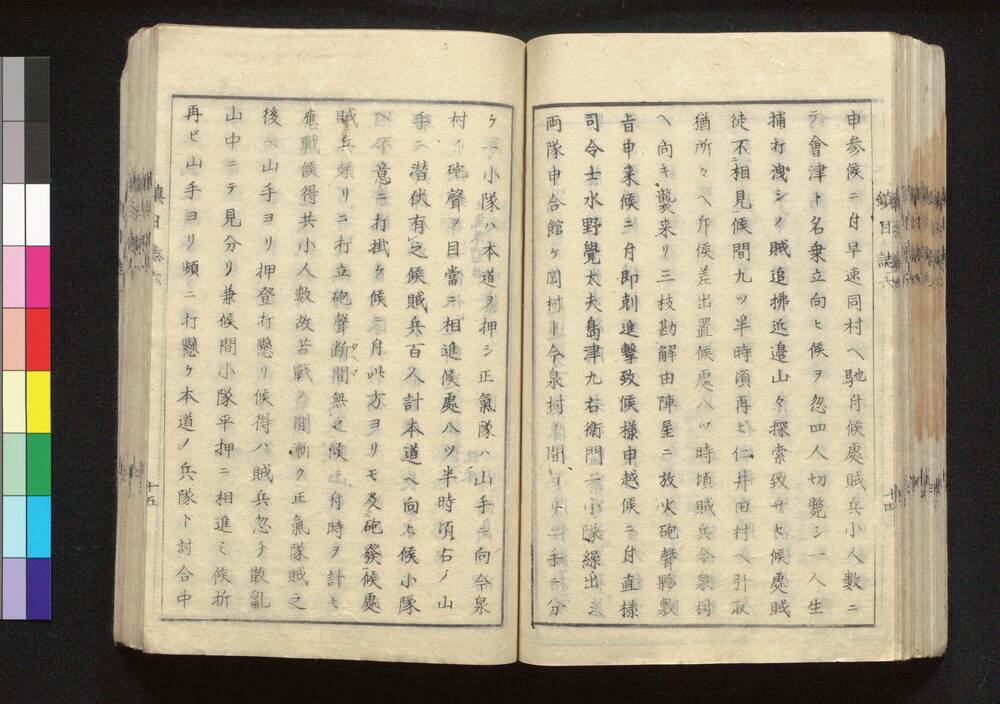 申参候ニ付早速同村ヘ馳付候處賊兵小人數ニ
テ會津ト名乗立向ヒ候ヲ忽四人切斃シ一人生
捕打洩シノ賊追拂近邉山々探索致サセ候處賊
徒不相見候間九ツ半時頃再ヒ仁井田村ヘ引取
猶所々ヘ斥候差出置候處八ツ時頃賊兵今泉村
ヘ向キ襲来リ三枝勘解由陣屋ニ放火砲聲夥敷
旨申来候ニ付即刻進撃致候様申越候ニ付直様
司令士水野覺太夫島津九右衛門一小隊繰出シ
両隊申合館ケ岡村ト今泉村ノ間ヨリ二手ニ分
ケ一小隊ハ本道ヲ押シ正氣隊ハ山手ニ向今泉
村ノ砲聲ヲ目當ニ相進候處八ツ半時頃右ノ山
手ニ潜伏有之候賊兵百人計本道ヘ向ヒ候小隊
ヘ不意ニ打掛ケ候ニ付此方ヨリモ及砲發候處
賊兵頻リニ打立砲聲断間無之候ニ付時ヲ計ヒ
タヘマ
應戰候得共小人數故苦戰ノ間漸ク正氣隊賊之
後ヘ山手ヨリ押登打懸リ候得ハ賊兵忽チ散亂
山中ニテ見分リ兼候間小隊平押ニ相進ミ候折
再ビ山手ヨリ頻ニ打懸ケ本道ノ兵隊ト討合中
鎮日誌六
廿四
鎮日誌六
十五